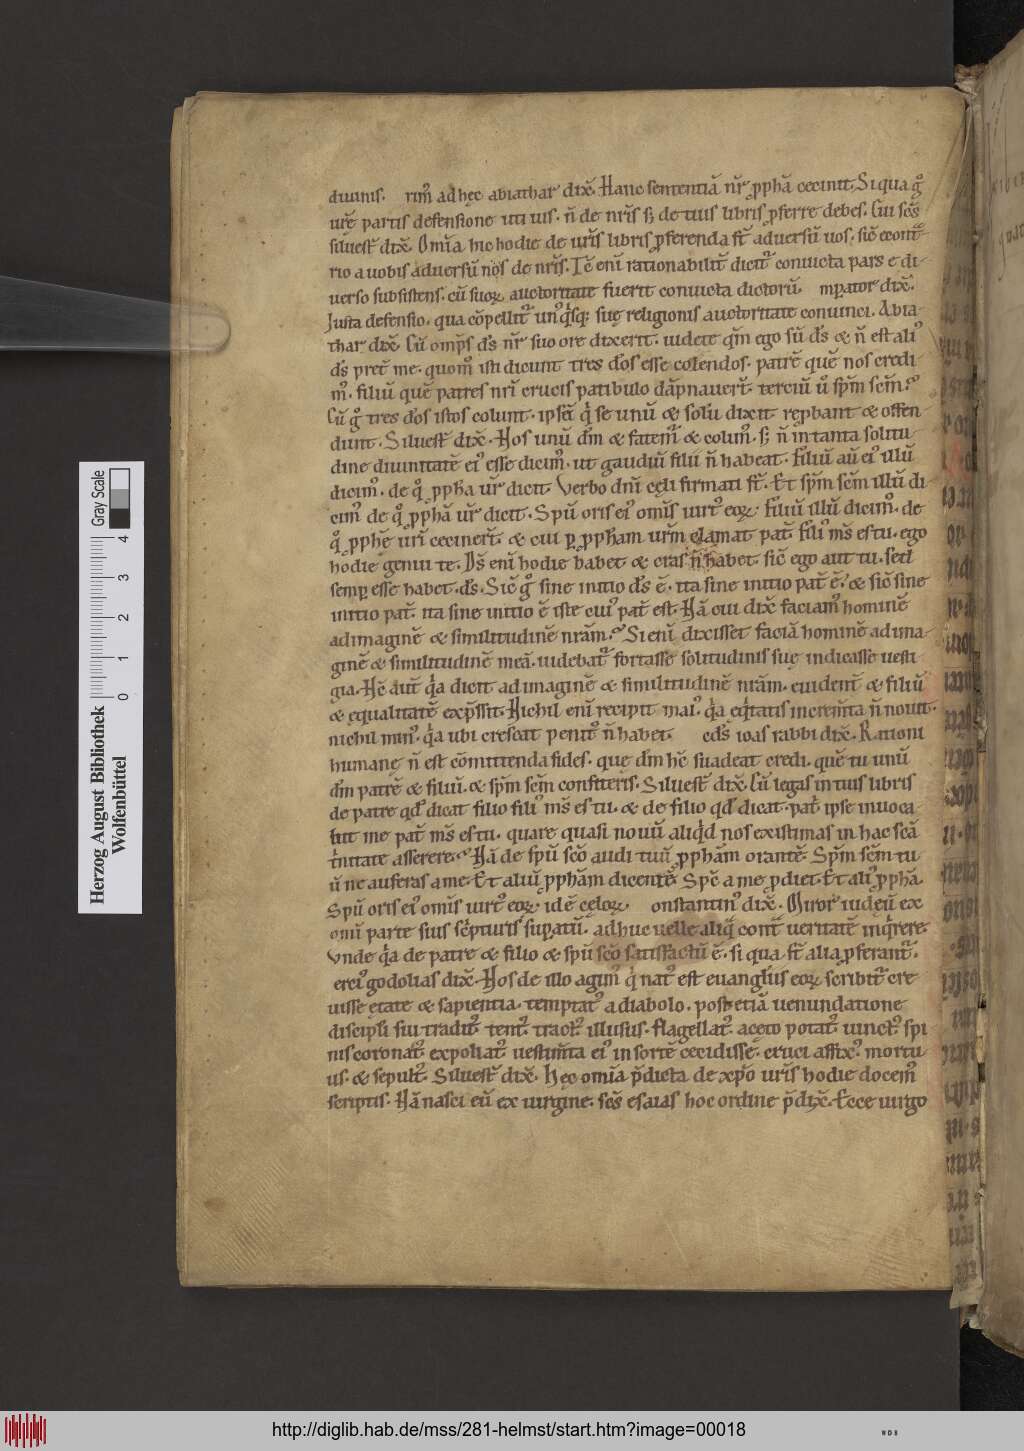 diuinis. rim᷒ ad hęc abiathar dix̄. Hanc sententiā nr̄ ꝓphā cecinit. Si qua gͦ
ur̄e partis defensione uti uis. n̄ de nr̄is sꝫ de tuis libris ꝓferre debes. Cui sc̄s
siluest̄ dix̄. Om̄ia hic hodie de ur̄is libris ꝓferenda st̄ aduersū uos. sic̄ econt̄
rio a uobis aduersū nos de nr̄is. Tc̄ enī rationabilit̄ dicit᷒ conuicta pars e di-
uerso subsistens. cū suoꝝ auctoritate fuerit conuicta dictorū. mꝑator dix̄.
Justa defensio. qua cōpellit᷒ un᷒ qͥsqꝫ suę religionis auctoritate conuinci. Abia-
thar dix̄. Cū om̄ps ds̄ nr̄ suo ore dixerit. uidete qm̄ ego sū ds̄ & n̄ est ali᷒
ds̄ pret̄ me. quom᷒ isti dicunt tres dōs esse colendos. patrē quē nos credi-
m᷒. filiū quē patres nrī crucis patibulo dāpnauer̄t. terciū ū sp̄m sc̄m?
Cū gͦ tres dōs istos colunt. ipsēi qͥ se unū & solū dixit rep̱bant & offen-
dunt. Siluest̄ dix̄. Nos unū dm̄ & fatem᷒ & colim᷒. sꝫ n̄ in tanta solitu-
dine diuinitatē ei᷒ esse dicim᷒. ut gaudiū filii n̄ habeat. Filiū aū ei᷒ illū
dicim᷒. de qͦ ꝓpha ur̄ dicit. Verbo dn̄i cęli firmati st̄. Et sp̄m sc̄m illū di-
cim᷒ de qͦ ꝓphā ur̄ dicit. Spū oris ei᷒ om̄is uirt᷒ eoꝝ. Filiū illū dicim᷒. de
qͦ ꝓphę urī cecinert̄. & cui ꝑ ꝓpham ur̄m clamat pat̄. Fili᷒ ms̄ es tu. ego
hodie genui te. Ds̄ enī hodie habet & cras n̄ habet. sic̄ ego aut tu. sed
semꝑ esse habet ds̄. Sic̄ gͦ sine initio ds̄ ē. ita sine initio pat̄ ē. & sic̄ sine
initio pat̄. ita sine initio ē iste cui᷒ pat̄ est. Nā cui dix̄ faciam᷒ hominē
ad imaginē & similitudinē nrām? Si enī dixisset faciā hominē ad ima-
ginē & similitudinē meā. uidebat᷒ fortasse solitudinis suę indicasse uesti-
gia. Hc̄ aut̄ qͥa dicit ad imaginē & similitudinē nrām. euident̄ & filiū
& equalitatē exp̄ssit. Nichil enī recipit mai᷒. qͥa eqͥtatis increm̄ta n̄ nouit.
nichil min᷒. qͥa ubi crescat penit᷒ n̄ habet. eds̄ ioas rabbi dix̄. Rationi
humanę n̄ est cōmittenda fides. que dm̄ hc̄ suadeat credi. quē tu unū
dm̄ patrē & filiū. & sp̄m sc̄m confiteris. Siluest̄ dix̄. Cū legas in tuis libris
de patre qđ dicat filio fili᷒ ms̄ es tu. & de filio qđ dicat. pat̄ ipse inuoca-
bit me pat̄ ms̄ es tu. quare quasi nouū aliqͥd nos existimas in hac scā
tͥnitate asserere? Nā de spū scō audi tuū ꝓphām orantē. Sp̄m sc̄m tu-
ū ne auferas a me. Et aliū ꝓphām dicentē. Spc̄ a me ꝓdiet. Et ali᷒ ꝓphā.
Spū oris ei᷒ om̄is uirt᷒ eoꝝ. id ē cęloꝝ. onstantin᷒ dix̄. Miror iudęū ex
omī parte suis sc̄pturis sup̄atū. adhuc uelle aliq̄ cont̄ ueritatē inqͥrere
Vnde qͥa de patre & filio & spū scō satisfactū ē. si qua st̄ alia ꝓferant᷒.
erci᷒ godolias dix̄. Nos de illo agim᷒ qͥ nat᷒ est euangłiis eoꝝ scribit᷒ cre-
uisse ętate & sapientia. temptat᷒ a diabolo. post etiā uenundatione
discipłi sui tradit᷒. tent᷒. tract᷒. illusus. flagellat᷒. aceto potat᷒. uinct᷒. spi-
nis coronat᷒. expoliat᷒. uestim̄ta ei᷒ in sortē cecidisse. cruci affix᷒. mortu-
us. & sepult᷒. Siluest̄ dix̄. Hęc om̄ia p̄dicta de xp̄o ur̄is hodie docem᷒
scriptis. Nā nasci eū ex uirgine. sc̄s esaias hoc ordine p̄dix̄. Ecce uirgo
Herzog August Bibliothek
Wolfenbüttel
0 1 2 3 4
Gray Scale
http://diglib.hab.de/mss/281-helmst/start.htm?image=00018